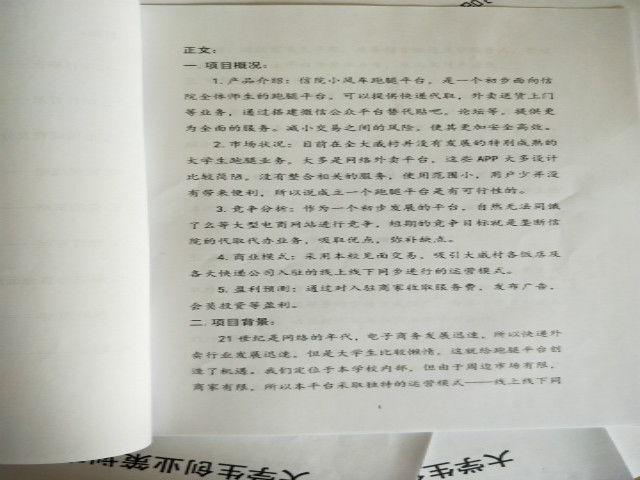 正文：
一. 项目概况：
1. 产品介绍：信院小风车跑腿平台，是一个初步面向信
院全体师生的跑腿平台，可以提供快递代取，外卖送货上门
等业务，通过搭建微信公众平台替代贴吧，论坛等，提供更
为全面的服务。减小交易之间的风险，使其更加安全高效。
2. 市场状况：目前在全大成村并没有发展的特别成熟的
大学生跑腿业务，大多是网络外卖平台，这些 APP 大多设计
比较简陋，没有整合相关的服务，使用范围小，用户少并没
有带来便利，所以说成立一个跑腿平台是有可行性的。
3. 竞争分析：作为一个初步发展的平台，自然无法同饿
了么等大型电商网站进行竞争，短期的竞争目标就是垄断信
院的代取代办业务，吸取优点，弥补缺点。
4. 商业模式：采用本校见面交易，吸引大成村各饭店及
各大快递公司入驻的线上线下同步进行的运营模式。
5. 盈利预测：通过对入驻商家收取服务费，发布广告，
会员投资等盈利。
二. 项目背景：
21 世纪是网络的年代，电子商务发展迅速，所以快递外
卖行业发展迅速，但是大学生比较懒惰，这就给跑腿平台创
造了机遇。我们定位于本学校内部，但由于周边市场有限，
商家有限，所以本平台采取独特的运营模式——线上线下同
1
大学生创业策划
大学生